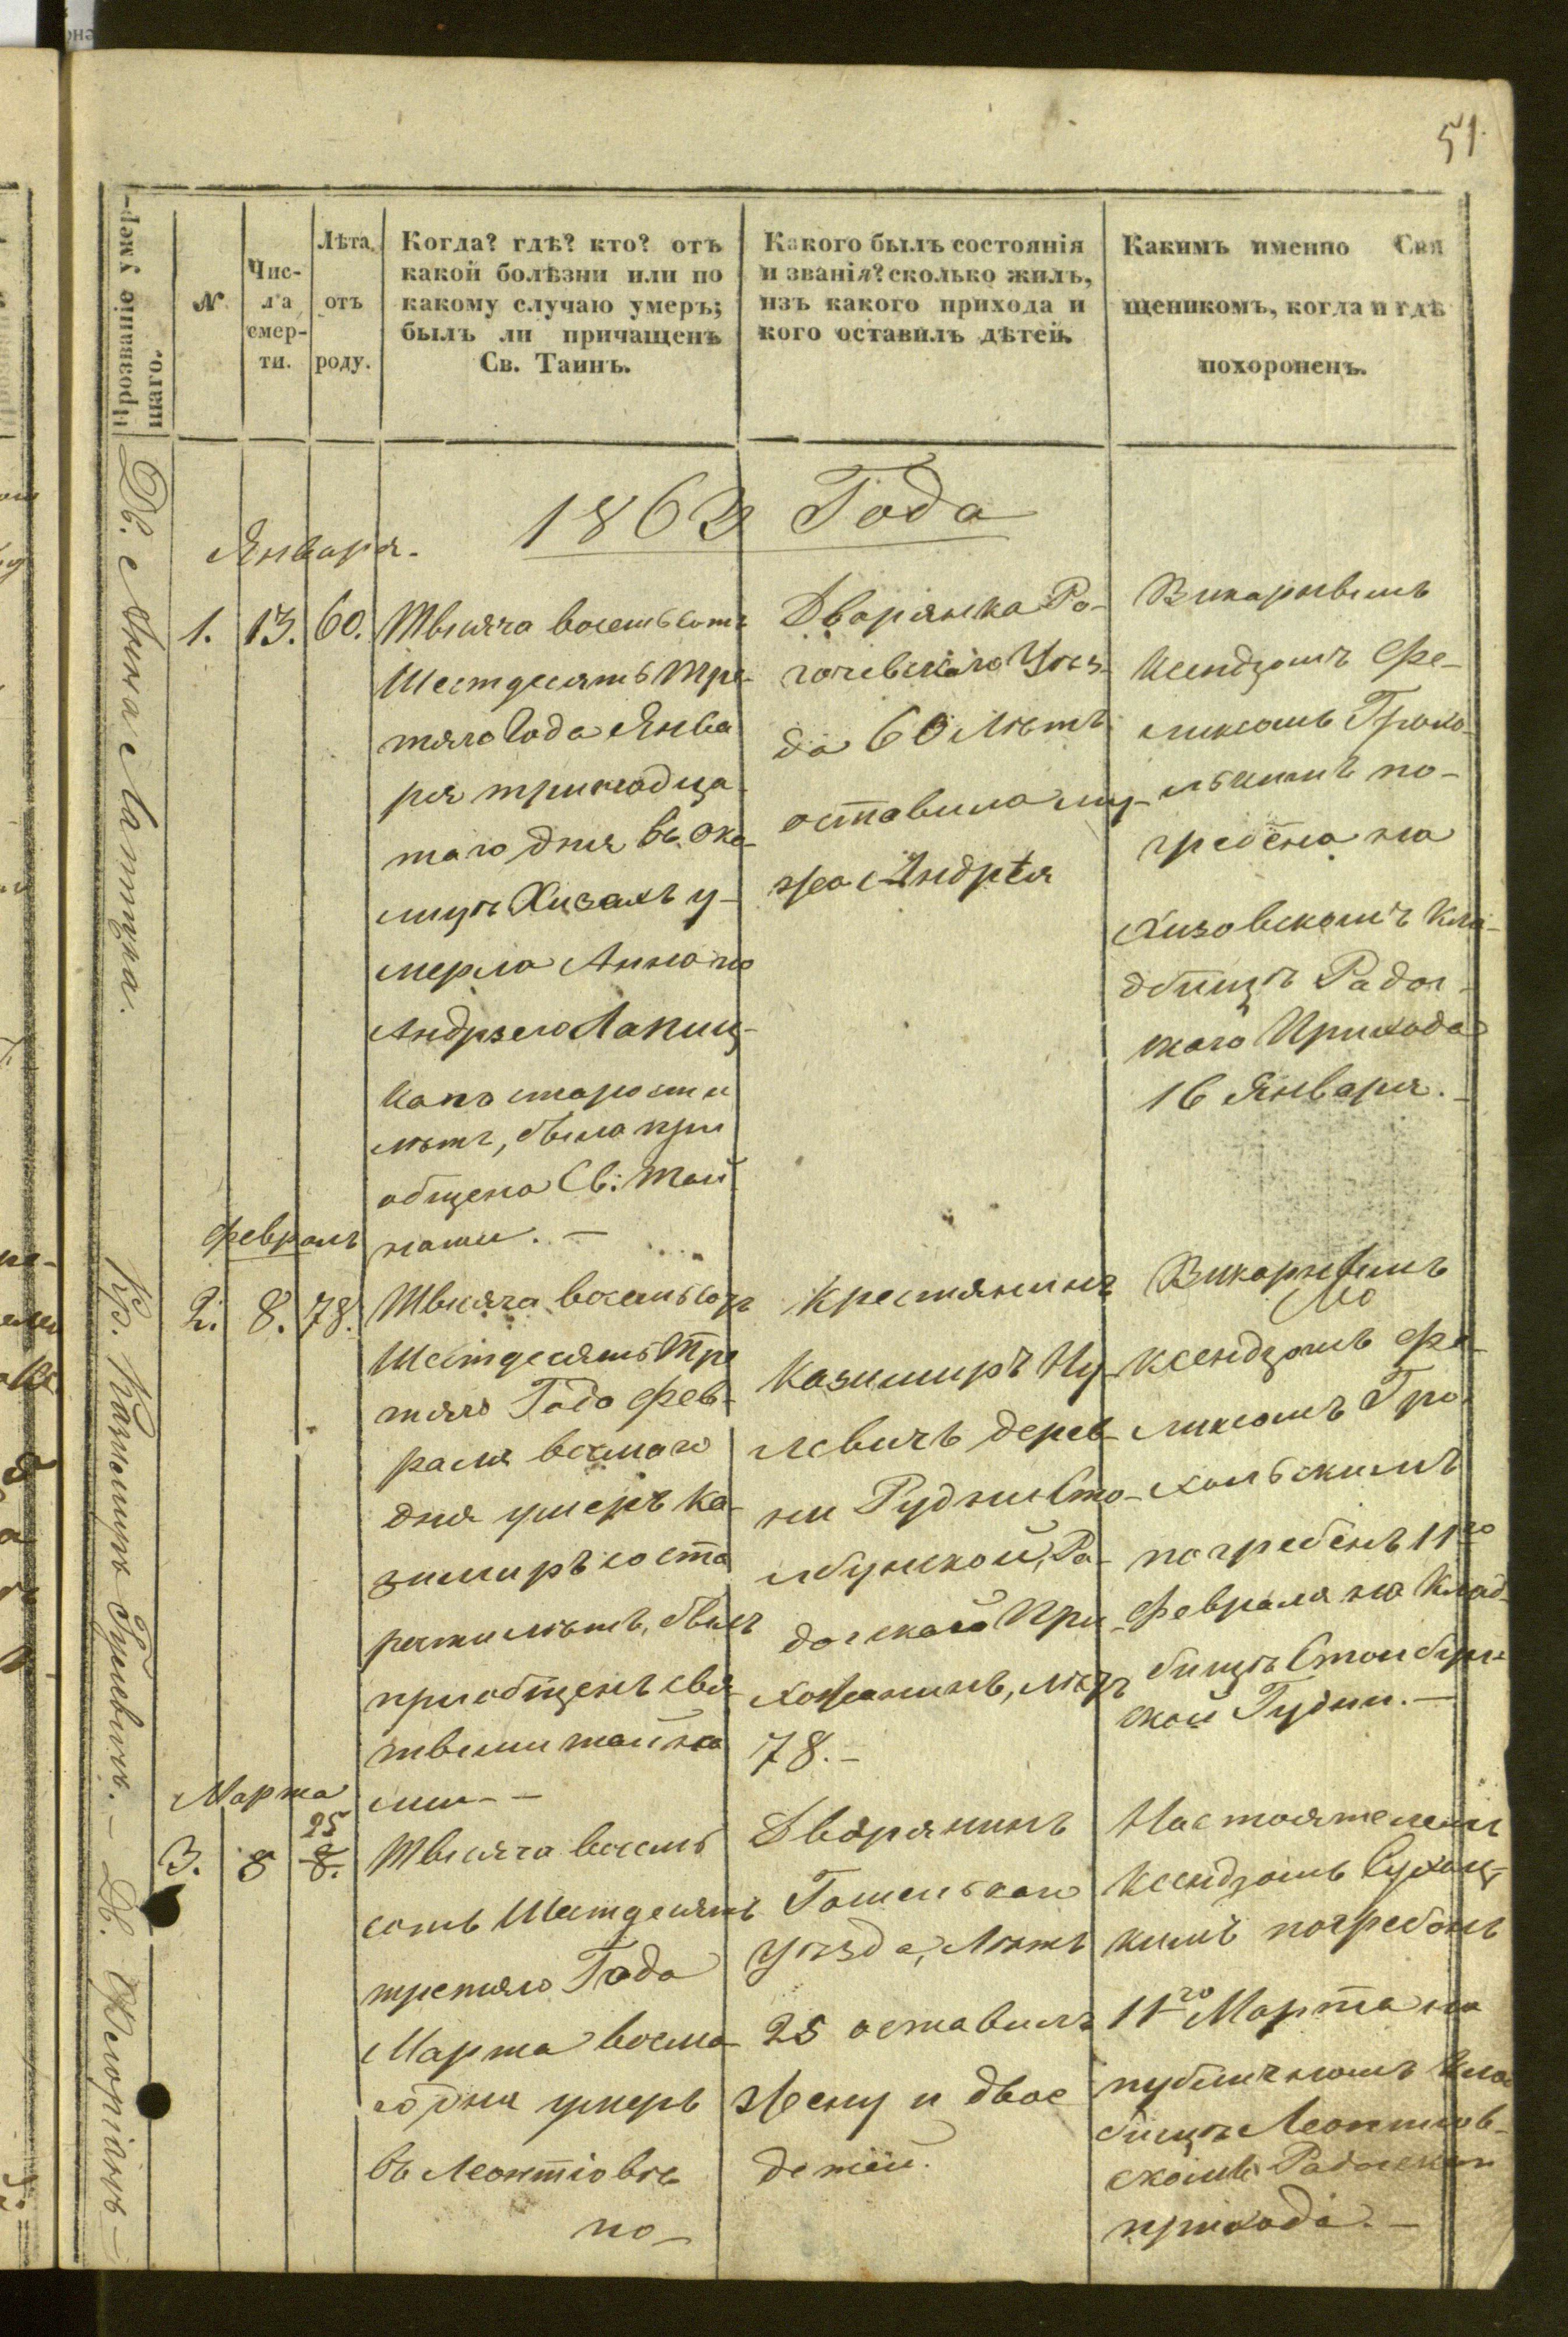 51.
Прозваніе умер-
шаго.
№
Чис-
ла
смер-
ти.
Лѣта
отъ
роду.
Когда? гдѣ? кто? отъ
какой болѣзни или по
какому случаю умеръ;
былъ ли причащенъ
Св. Таинъ.
Какого былъ состоянія
и званія? сколько жилъ,
изъ какого прихода и
кого оставилъ дѣтей.
Какимъ именно Свя
щеникомъ, когда и гдѣ
похороненъ.
1863 Года
Января.
Дв. Анна Лапицка.
1. 13. 60.
Тысяча восемьсотъ
Шестдесятъ тре-
тяго Года Янва
ря тринадца-
таго дня въ око-
лицѣ Хизахъ у-
мерла Анна по
Андрзею Лапиц-
ка по старости
лѣтъ, была при
общена Св: Тай
нами. —
Дворянка Ро-
гачевскаго Уѣз-
да 60 Лѣтъ
оставила му-
жа Андрѣя
Викарнымъ
Ксендзомъ Фе-
ликсомъ Грохо-
льскимъ по-
гребена на
Хизовскомъ Кла-
дбищѣ Радог-
скаго Прихода
16 Января. —
Февраль
Кр. Казимиръ Гулевичъ. —
2. 8. 78.
Тысяча восемьсотъ
Шестдесятъ Тре
тяго Года Фев-
раля восмаго
дня умеръ Ка-
зимиръ со ста
рости лѣтъ, былъ
приобщенъ свя
тыми тайна
ми - —
Крестянинъ
Казимиръ Гу-
левичъ дерев-
ни Рудни Сто-
лбунской, Ра-
догскаго При-
хожанинъ, лѣтъ
78. —
Викарнымъ
Ксендзомъ Фе-
ликсомъ Гро-
хольскимъ
погребенъ 11го
Февраля на Клад-
бищѣ Столбун-
ской Рудни. —
Марта
Дв. Флоріянъ —
3. 8 25
8.
Тысяча восемь
сотъ Шестдесятъ
третяго Года
Марта восма-
го дня умеръ
въ Леонтіовѣ
по-
Дворянинъ
Гомельскаго
уѣзда, Лѣтъ
25 оставилъ
Жену и двое
детей.
Настоятелемъ
Ксендзомъ Сухоц-
кимъ погребенъ
11го Марта на
публичномъ Клад
бищѣ Леонтіов-
скомъ Радогскаго
прихода. —